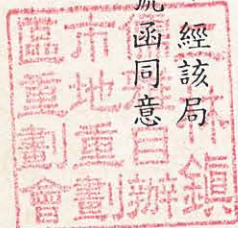 經該局
函同意
林鎮
自辦
市地重劃
區重劃會